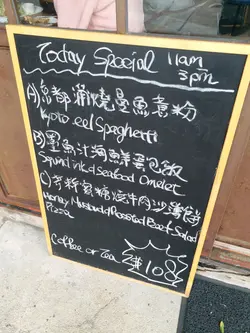 Today Special 11am
3pm
A) 京都蒲燒鰻魚意粉
Kyoto eel Spaghetti
B) 墨魚汁海鮮奄列飯
Squid ink & Seafood Omelet
C) 芥籽蜜糖燒牛肉沙律薄餅
Honey Mustard Roasted Beef Salad
Pizza
Coffee or Tea $108